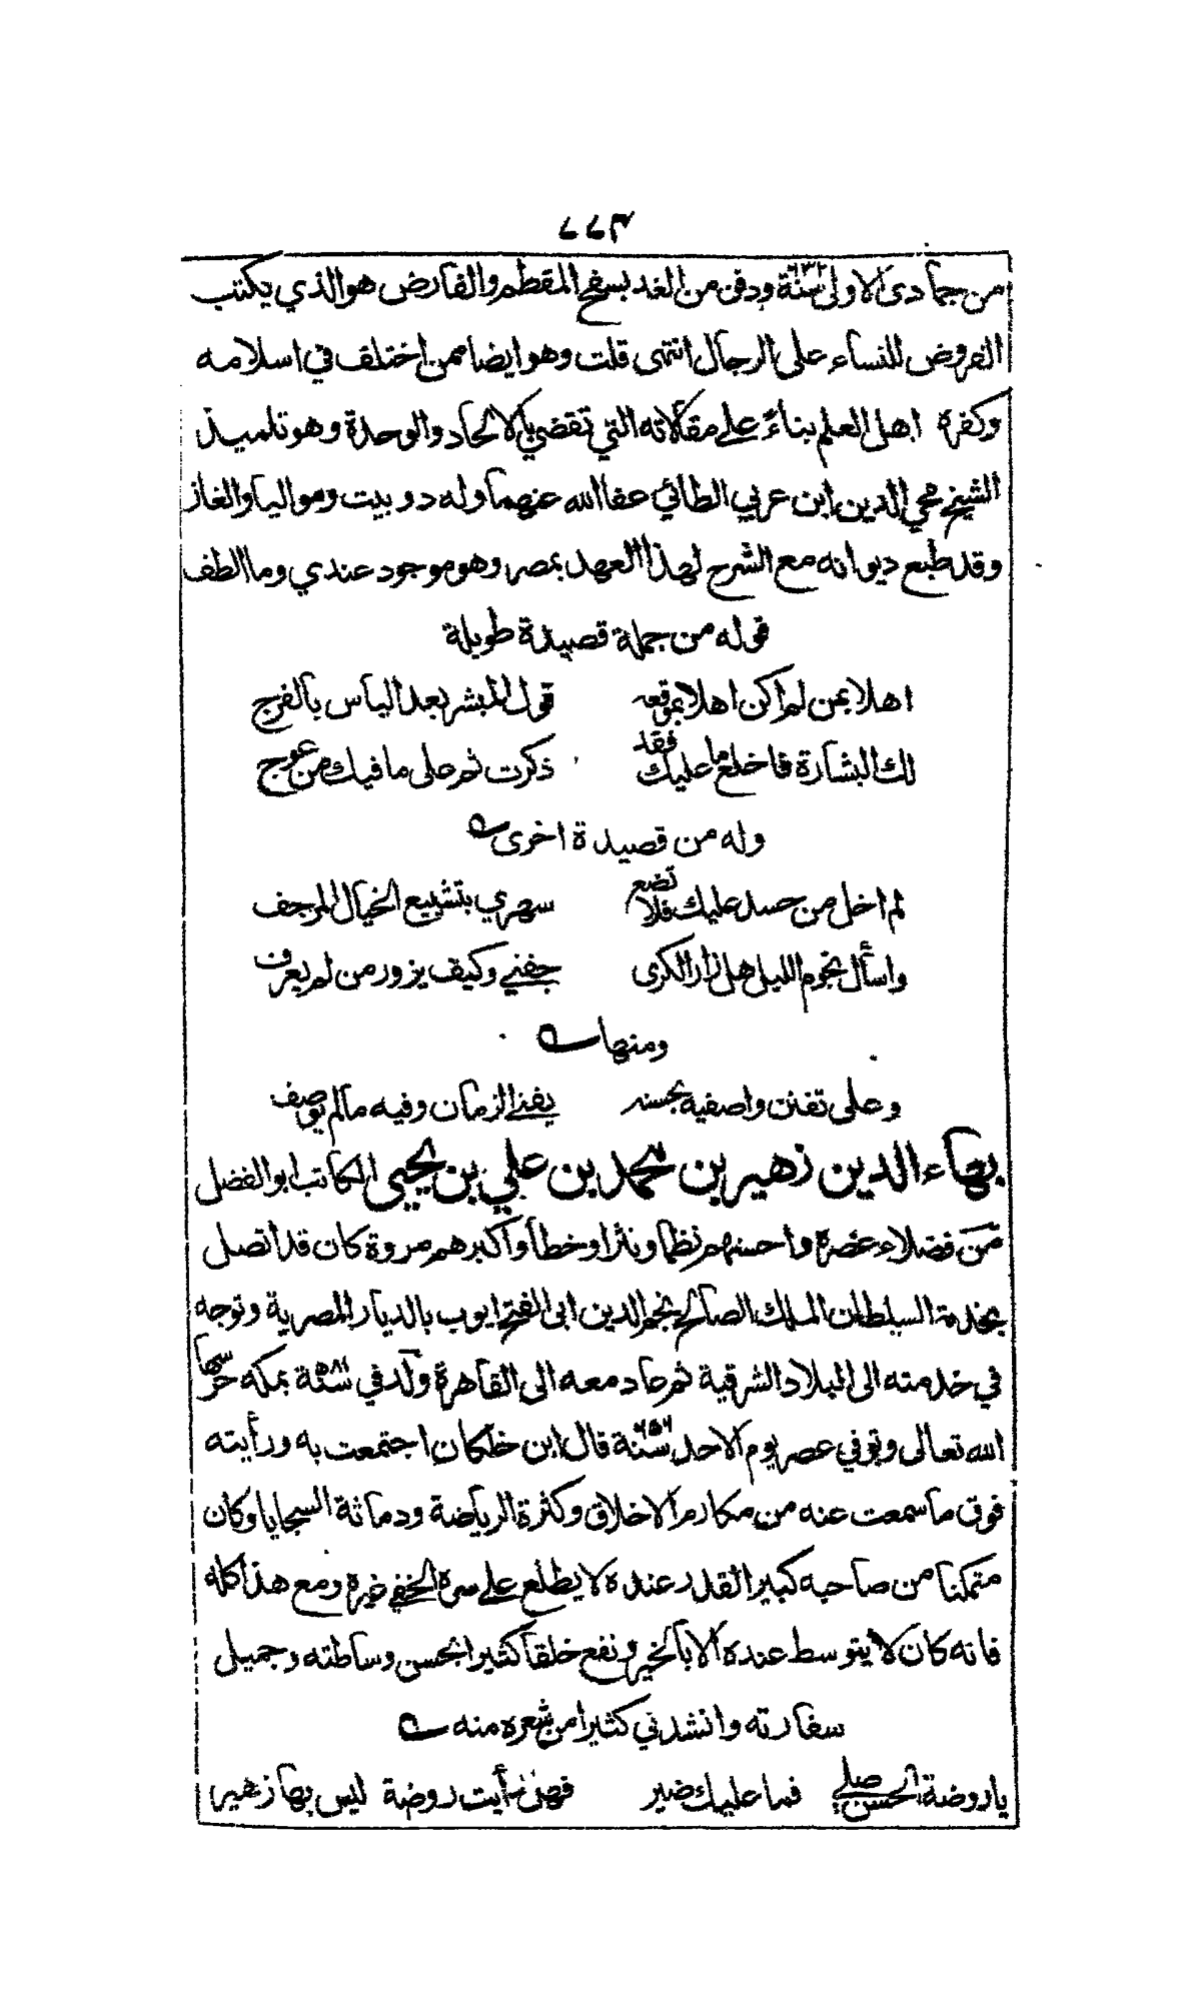 ٧٧٣
من جمادى الاولى سنة ٦٣٢ ودفن من الغد بسفح المقطم والفارض هو الذي يكتب
الفروض للنساء على الرجال انتهى قلت وهو ايضا ممن اختلف في اسلامه
وكفره اهل العلم بناءً على مقالاته التي تقضي بالالحاد والوحدة وهو تلميذ
الشيخ محي الدين ابن عربي الطائي عفا الله عنهما وله دو بيت ومواليا والغاز
وقد طبع ديوانه مع الشرح لهذا العهد بمصر وهو موجود عندي وما الطف
قوله من جملة قصيدة طويلة
اهلا بمن لم اكن اهلا بموقعه قول المبشر بعد الياس بالفرج
لك البشارة فاخلع ما عليك فقد ذكرت ثم على ما فيك من عوج
وله من قصيدة اخرى
لم اخل من حسد عليك فلا تضع سهري بتشييع الخيال المرجف
واسأل نجوم الليل هل زار الكرى جفني وكيف يزور من لم يعرف
ومنها
وعلى تفنن واصفيه بحسنه يفنى الزمان وفيه ما لم يوصف
بهاء الدين زهير بن محمد بن علي بن يحيى الكاتب ابو الفضل
من فضلاء عصره واحسنهم نظما ونثرا وخطا واكبرهم مروة كان قد اتصل
بخدمة السلطان الملك الصالح نجم الدين ابى الفتح ايوب بالديار المصرية وتوجه
في خدمته الى البلاد الشرقية ثم عاد معه الى القاهرة ولد في سنة ٥٨١ بمكه حرسها
الله تعالى وتوفي عصر يوم الاحد سنة ٦٥٦ قال ابن خلكان اجتمعت به ورأيته
فوق ما سمعت عنه من مكارم الاخلاق وكثرة الرياضة ودماثة السجايا وكان
متمكنا من صاحبه كبير القدر عنده لا يطلع على سره الخفي غيره ومع هذا كله
فانه كان لا يتوسط عنده الا بالخير ونفع خلقا كثيرا بحسن وساطته وجميل
سفارته وانشدني كثيرا من شعره منه
يا روضة الحسن صلي فما عليك ضير فهل رأيت روضة ليس بها زهير